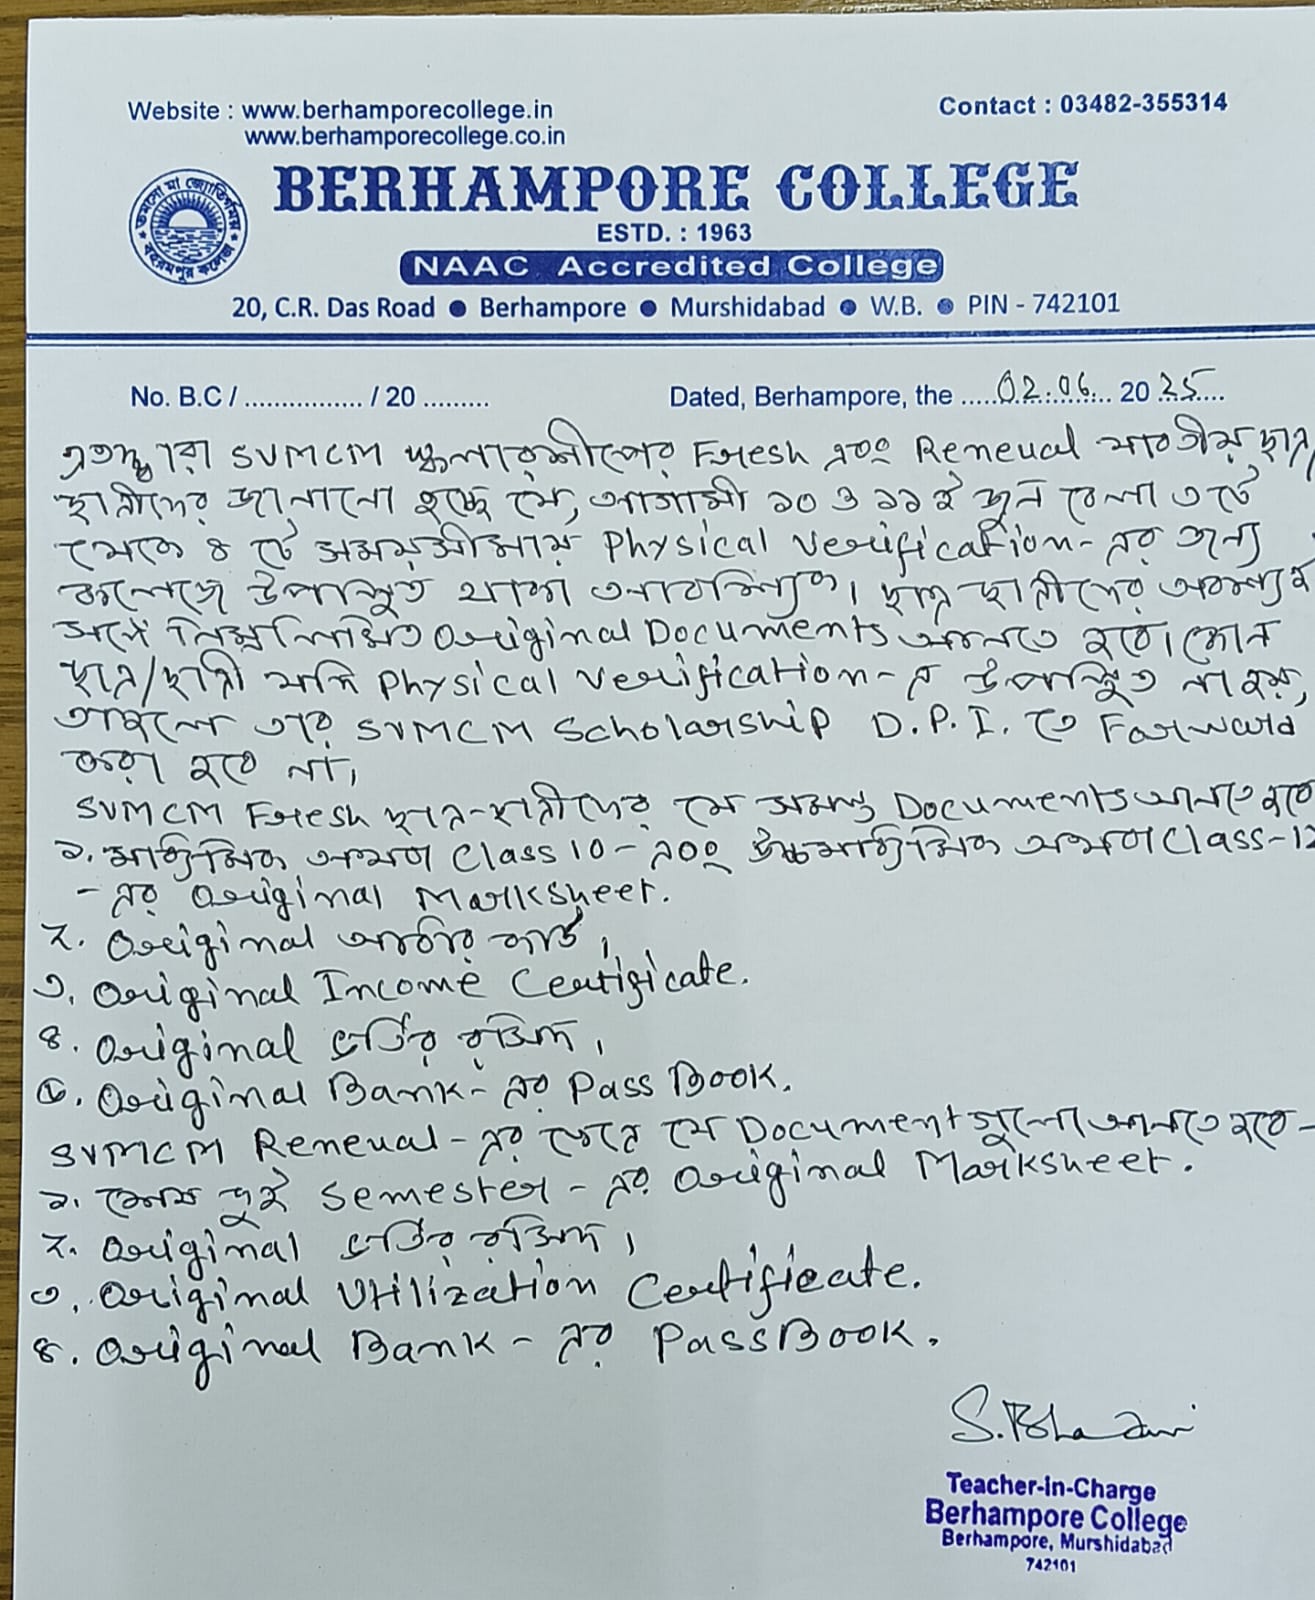 Website : www.berhamporecollege.in
www.berhamporecollege.co.in
Contact : 03482-355314
তমসো মা জ্যোতির্গময়
বহরমপুর কলেজ
BERHAMPORE COLLEGE
ESTD. : 1963
NAAC Accredited College
20, C.R. Das Road ● Berhampore ● Murshidabad ● W.B. ● PIN - 742101
No. B.C / ................ / 20 .........
Dated, Berhampore, the .....02.06.. 20 25....
এতদ্দ্বারা SVMCM স্কলারশীপের Fresh এবং Reneual যাবতীয় ছাত্র
ছাত্রীদের জানানো হচ্ছে যে, আগামী ১০ ও ১১ই জুন বেলা ৩টে
থেকে ৪ টে সময়সীমায় Physical Verification- এর জন্য
কলেজে উপস্থিত থাকা আবশ্যিক। ছাত্র ছাত্রীদের অবশ্যই
সঙ্গে নিম্নলিখিত Original Documents আনতে হবে। কোন
ছাত্র/ছাত্রী যদি Physical Verification- এ উপস্থিত না হয়,
তাহলে তার SVMCM Scholarship D.P.I. তে Farward
করা হবে না।
SVMCM Fresh ছাত্র-ছাত্রীদের যে সমস্ত Documents আনতে হবে
১. মাধ্যমিক অথবা Class 10 - এবং উচ্চমাধ্যমিক অথবা Class-12
- এর Original Marksheet.
২. Original আধার কার্ড।
৩. Original Income Certificate.
৪. Original ভর্তির রসিদ।
৫. Original Bank- এর Pass Book.
SVMCM Reneual - এর ক্ষেত্রে যে Document গুলো আনতে হবে -
১. শেষ দুই Semester - এর Original Marksheet.
২. Original ভর্তির রসিদ।
৩. Original Utilization Certificate.
৪. Original Bank - এর PassBook.
Teacher-in-Charge
Berhampore College
Berhampore, Murshidabad
742101